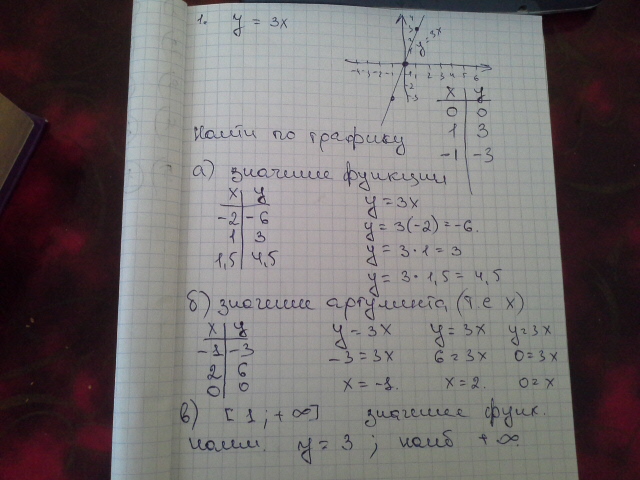 1. y = 3x
y=3x
-4 -3 -2 -1 1 2 3 4 5 6
x y
0 0
1 3
-1 -3
Найти по графику
а) значение функции
x y
-2 -6
1 3
1,5 4,5
y = 3x
y = 3(-2) = -6.
y = 3·1 = 3
y = 3·1,5 = 4,5
б) значение аргумента (т.е x)
x y
-1 -3
2 6
0 0
y = 3x y = 3x y = 3x
-3 = 3x 6 = 3x 0 = 3x
x = -1. x = 2. 0 = x
в) [1; +∞] значение функ.
наим. y = 3 ; наиб +∞